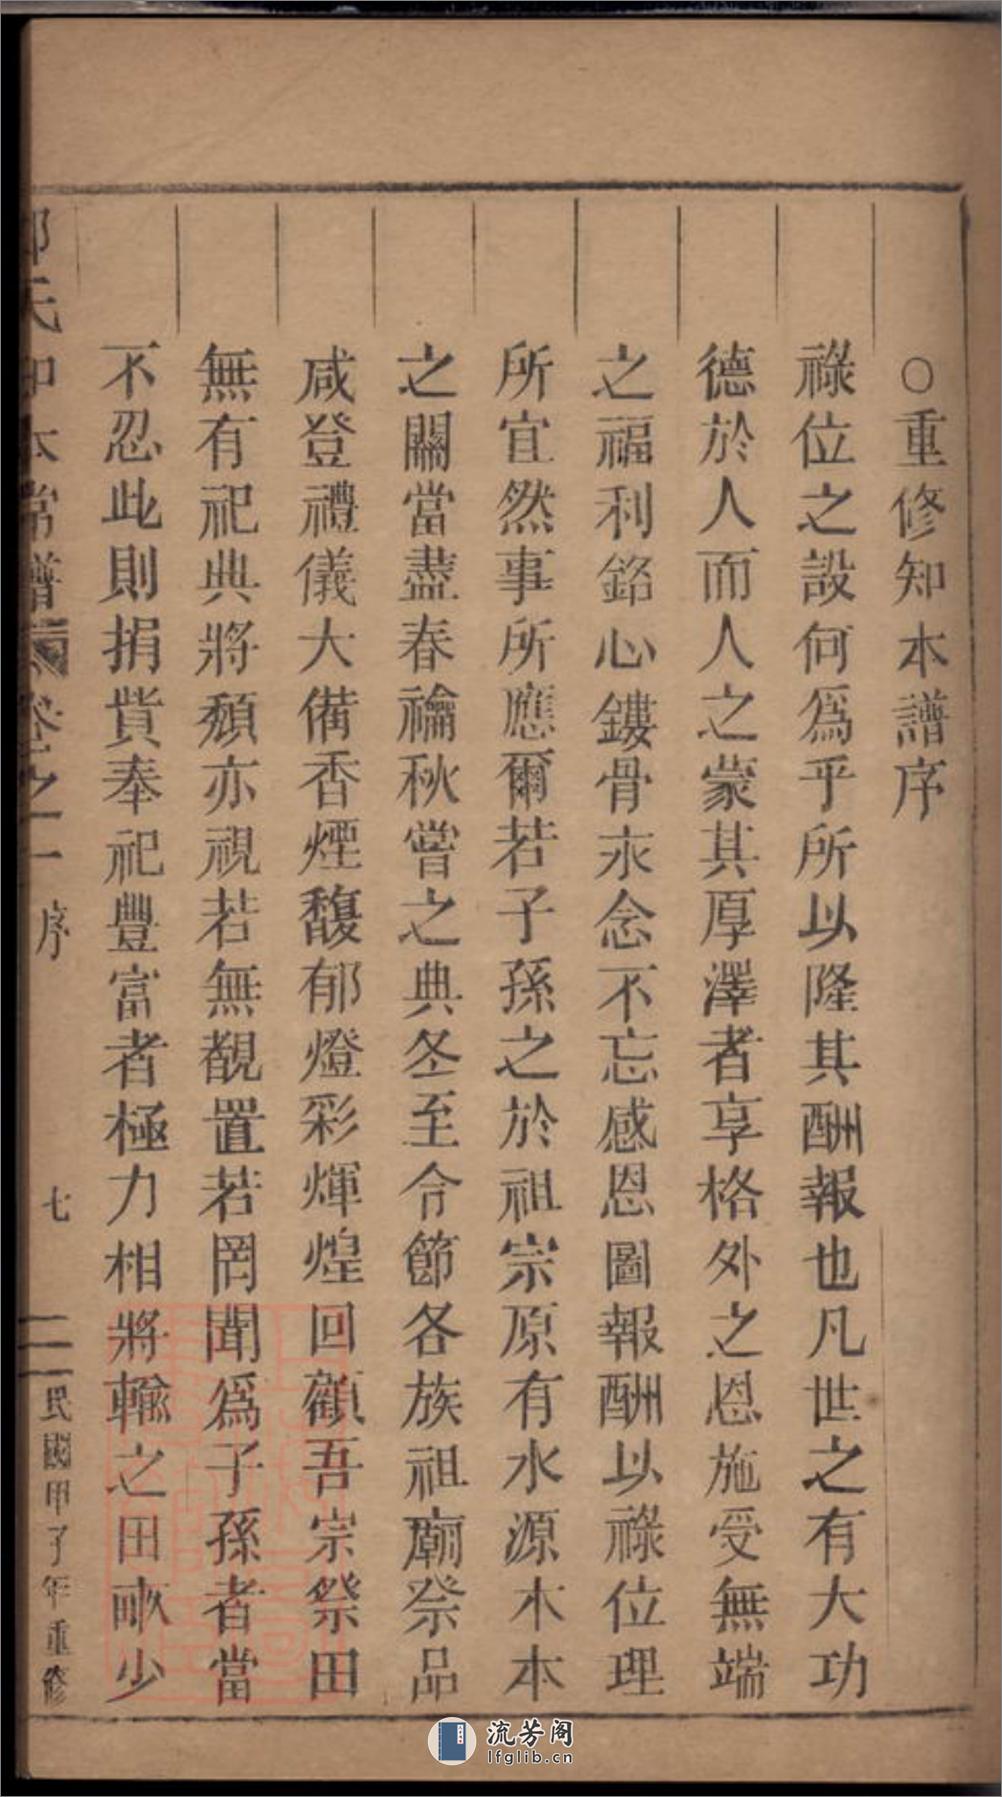 ○重修知本譜序
祿位之設何爲乎所以隆其酬報也凡世之有大功
德於人而人之蒙其厚澤者享格外之恩施受無端
之福利銘心鏤骨永念不忘感恩圖報酬以祿位理
所宜然事所應爾若子孫之於祖宗原有水源木本
之關當盡春禴秋嘗之典冬至令節各族祖廟祭品
咸登禮儀大備香煙馥郁燈彩煇煌回顧吾宗祭田
無有祀典將頽亦視若無覩置若罔聞爲子孫者當
不忍此則捐貲奉祀豐富者極力相將輸之田畝少
氏知本常譜 卷之一 序 七 民國甲子年重修
流芳阁
lfglib.cn